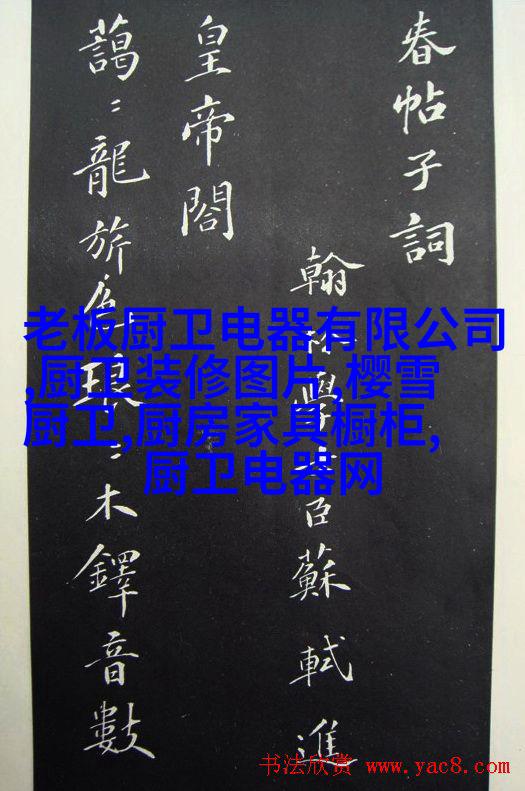 春帖子詞
翰林學士臣蘇軾進
皇帝閣
藹〻龍旂色琅〻木鐸音數
老板厨卫电器有限公司
,厨卫装修图片,樱雪
厨卫,厨房家具橱柜,
厨卫电器网
书法欣赏 www.yac8.com